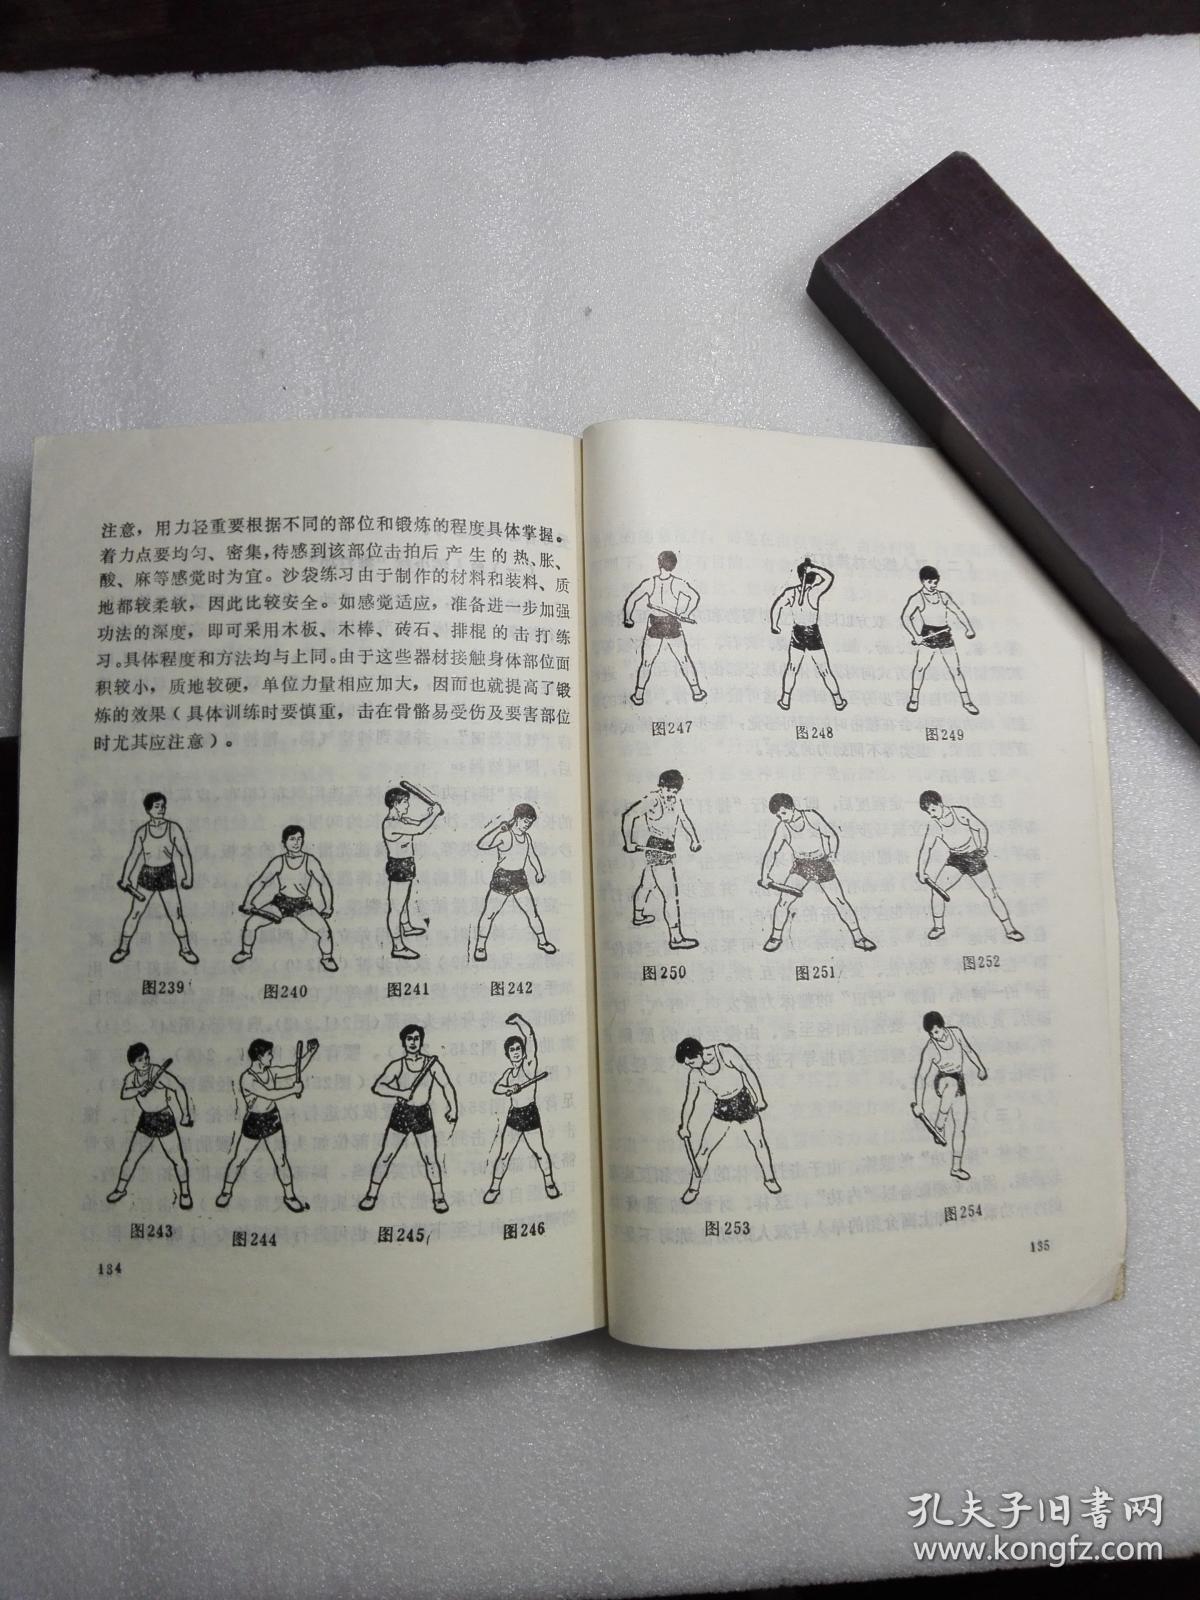 注意，用力轻重要根据不同的部位和锻炼的程度具体掌握。
着力点要均匀、密集，待感到该部位击拍后产生的热、胀、
酸、麻等感觉时为宜。沙袋练习由于制作的材料和装料、质
地都较柔软，因此比较安全。如感觉适应，准备进一步加强
功法的深度，即可采用木板、木棒、砖石、排棍的击打练
习。具体程度和方法均与上同。由于这些器材接触身体部位面
积较小，质地较硬，单位力量相应加大，因而也就提高了锻
炼的效果（具体训练时要慎重，击在骨骼易受伤及要害部位
时尤其应注意）。
图239
图240
图241
图242
图243
图244
图245
图246
134
图247
图248
图249
图250
图251
图252
图253
图254
135
孔夫子旧书网
www.kongfz.com